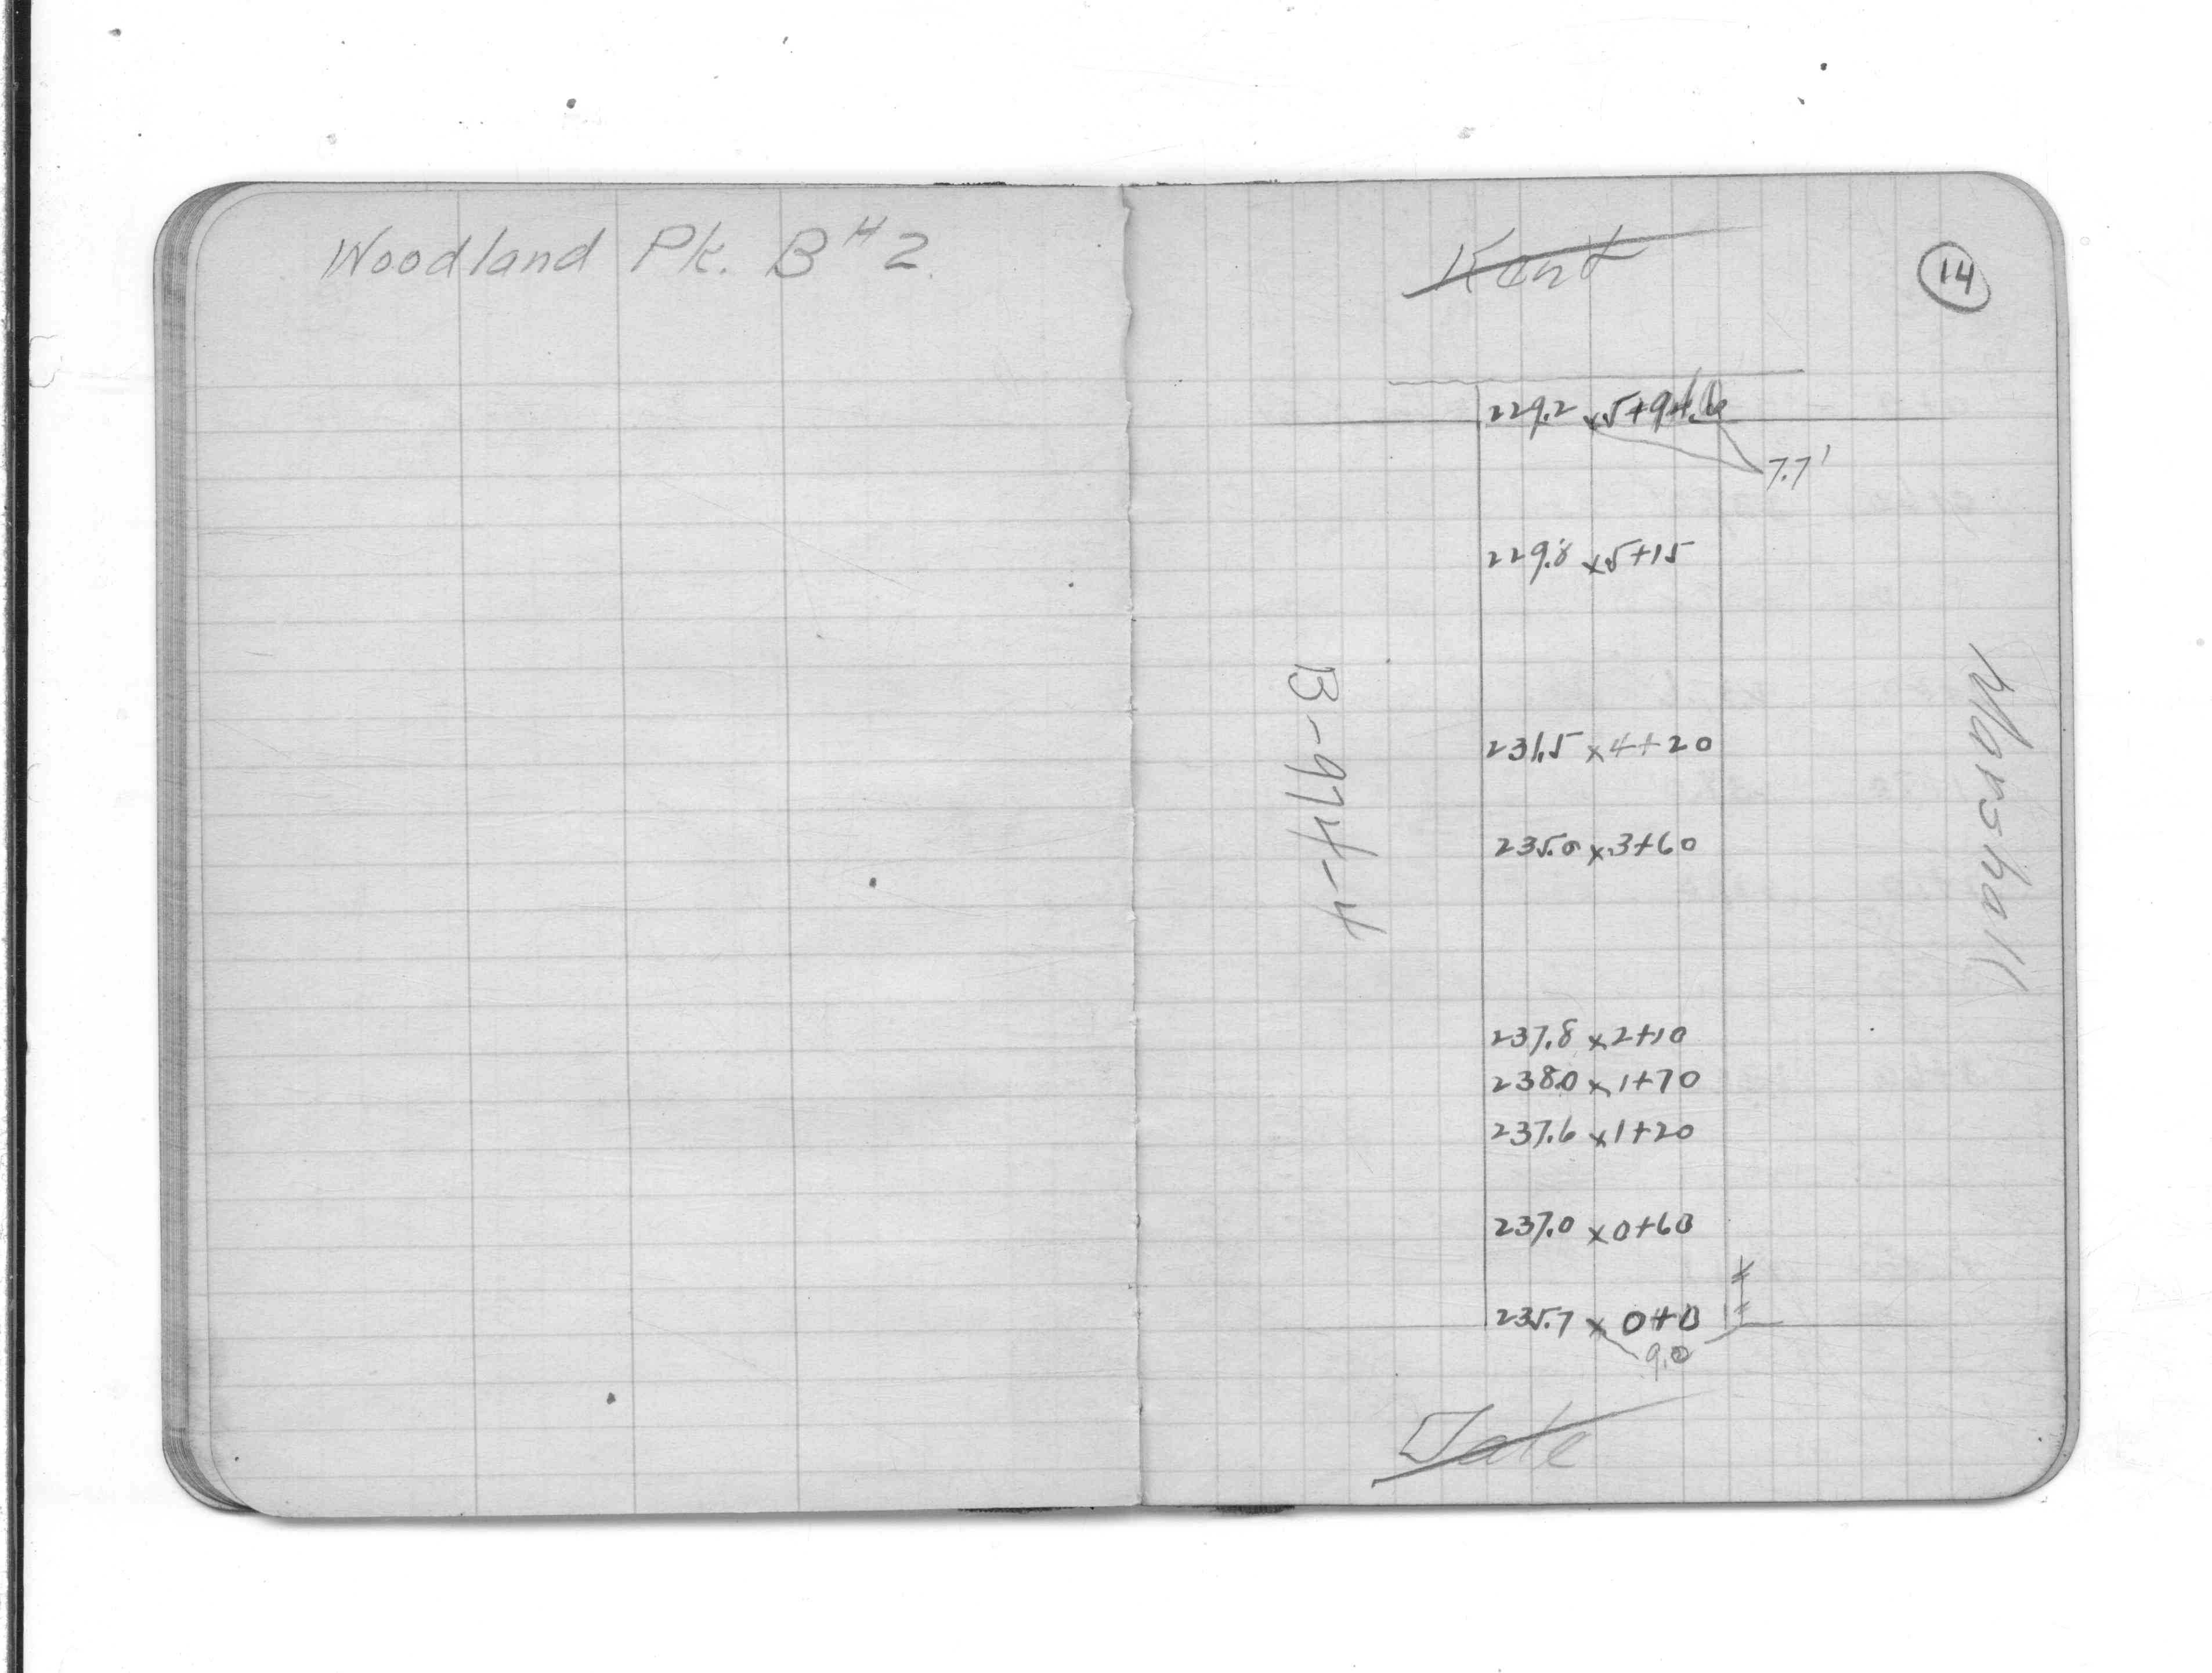 Woodland Pk. B# 2.
Kent
14
229.2 x 5+94.
7.7'
229.8 x 5+15
231.5 x 4+20
235.0 x 3+60
237.8 x 2+10
238.0 x 1+70
237.6 x 1+20
237.0 x 0+60
235.7 x 0+0
9.0
Tate
B-974-4
Marshall